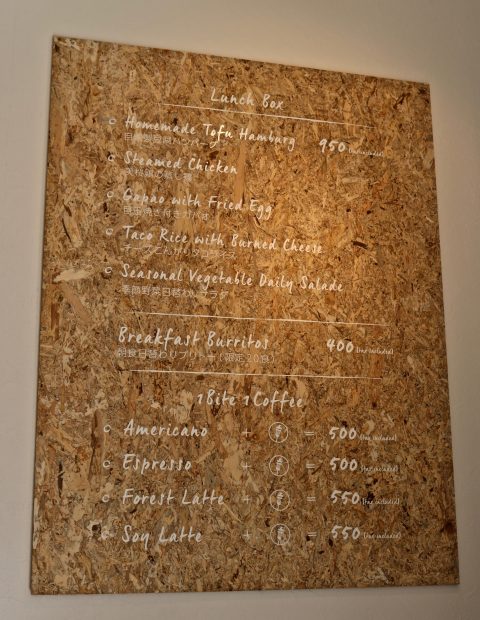 Lunch Box
Homemade Tofu Hamburg 950 (tax included)
Steamed Chicken
Gapao with Fried Egg
Taco Rice with Burned Cheese
Seasonal Vegetable Daily Salade
季節野菜日替わりサラダ
Breakfast Burritos 400 (tax included)
朝食日替わりブリトー (限定20食)
1 Bite 1 Coffee
Americano + = 500 (tax included)
Espresso + = 500 (tax included)
Forest Latte + = 550 (tax included)
Soy Latte + = 550 (tax included)